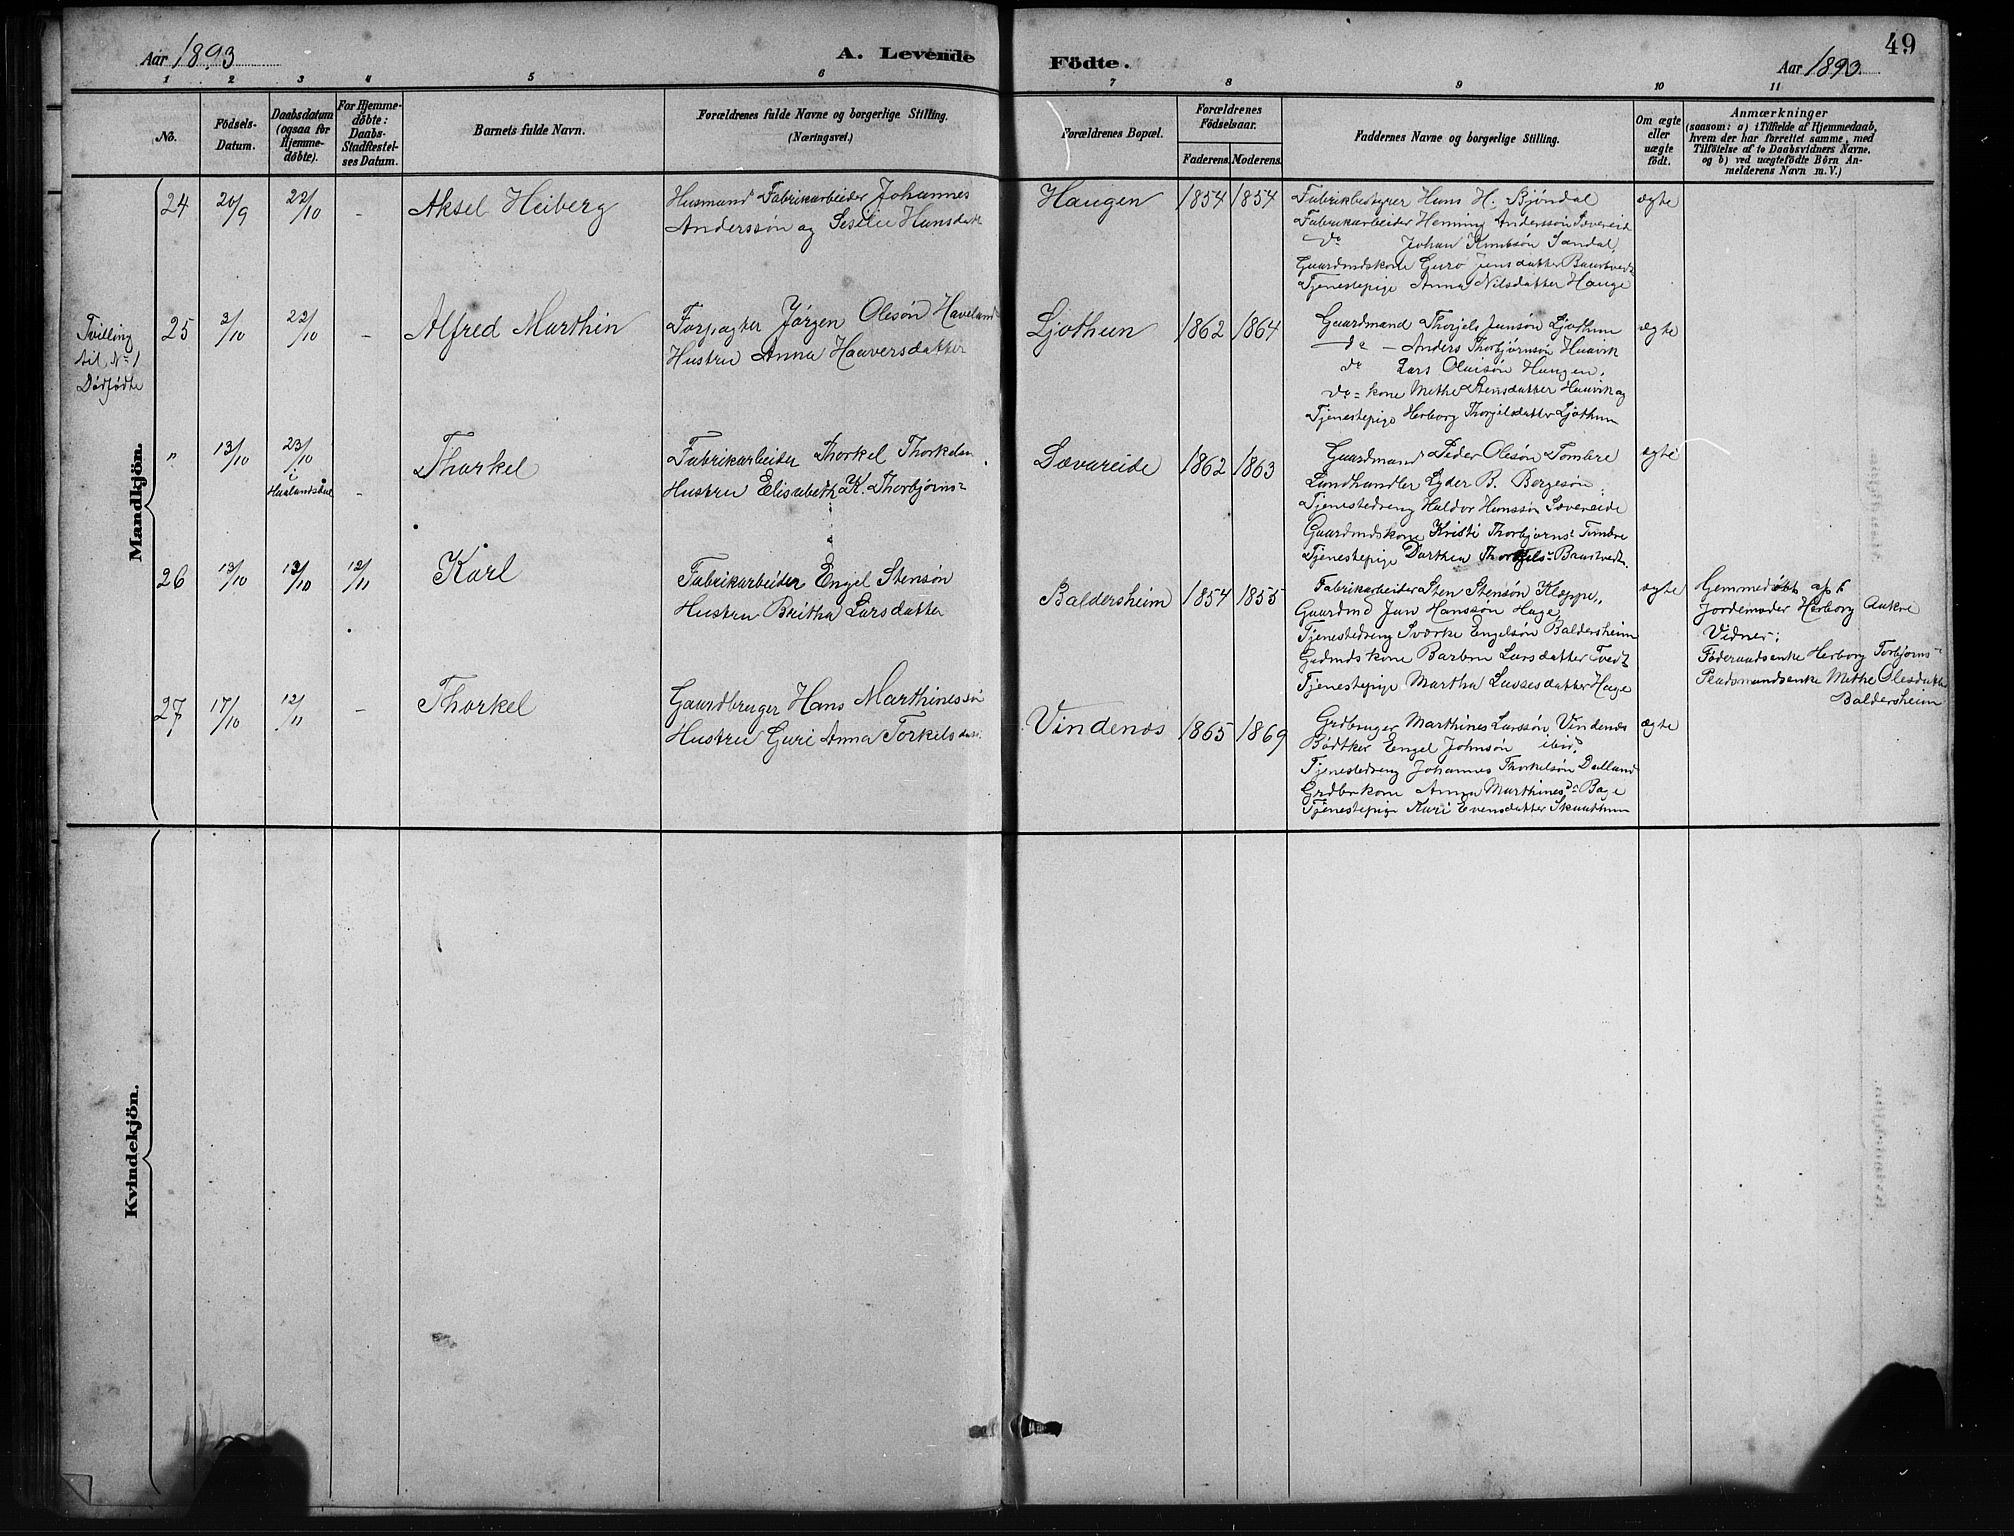 Aar 1893
A. Levende Födte.
Aar 1893.
49
1 2 3 4 5 6 7 8 9 10 11
No.
Födsels-Datum.
Daabsdatum (ogsaa for Hjemme-döbte).
For Hjemme-döbte: Daabs-Stadfæstel-ses Datum.
Barnets fulde Navn.
Forældrenes fulde Navne og borgerlige Stilling.
(Næringsvei.)
Forældrenes Bopæl.
Forældrenes Födselsaar.
Faderens. Moderens.
Faddernes Navne og borgerlige Stilling.
Om ægte eller uægte födt.
Anmærkninger
(saasom: a) i Tilfælde af Hjemmedaab,
hvem der har forrettet samme, med
Tilföielse af to Daabsvidners Navne.
og b) ved uægtefödte Börn An-
melderens Navn m. V.)
Mandkjön.
24 20/9 22/10 - Aksel Heiberg
Husmand Fabrikarbeider Johannes
Anderssøn og Seselie Hansdatt
Haugen 1854 1854
Fabrikbestyrer Hans H. Bjøndal
Fabrikarbeider Henning Anderssøn Sævereid
do Johan Knudsøn Sandal
Gaardmdskone Guro Jensdatter
Tjenestepige Anna Nilsdatter Hauge
ægte
Tvilling
til No 1
Dødfødte
25 3/10 22/10 - Alfred Marthin
Forpagter Jørgen Olesøn Haveland
Hustru Anna Haaversdatter
Ljothun 1862 1864
Gaardmand Thorjels Jansøn Ljothun
do - Anders Thorbjørnsøn Haavik
do Lars Oluisøn Haugen.
do = kone Methe Stensdatter Haavik og
Tjenestepige Herborg Thorjelsdatter Ljothun
ægte
" 13/10 23/10 i - Thorkel
Fabrikarbeider Thorkel Thorkelsen
Hustru Elisabeth K. Thorbjørns=
Sævareide 1862 1863
Gaardmand Peder Olesøn Tombre
Landhandler Lyder B. Børgesøn
Tjenestedreng Haldor Hanssøn Sævereide
Gaardmdskone Kristi Thorbjørns= Tombre
Tjenestepige Dorthea
ægte
26 13/10 13/10 12/11 Karl
Fabrikarbeider Engel Stensøn
Hustru Britha Larsdatter
Baldersheim 1854 1855
Fabrikarbeider Sten Stensøn Kleppe,
Gaardmd Jan Hanssøn Hage
Tjenestedreng Sværke Engelsøn Baldersheim
Gadmdskone Barbra Larsdatter Tvedt
Tjenestepige Martha Lassesdatter Hage
ægte
Hjemmedøbt af
Jordemoder Herborg Aakre
Vidner:
Føderaadsenke Herborg Torbjørns=
Methe Olesdatter
Baldersheim
27 17/10 12/11 - Thorkel
Gaardbruger Hans Marthinessøn
Hustru Guri Anna Torkelsdatt.
Vindenes 1865 1869
Grdbruger Marthines Larssøn Vindenes
Bødtker Engel Johnsøn ibid.
Tjenestedreng Johannes Thorkelsøn Dalland
Grdbrkone Anna Marthinesd= Bage
Tjenestepige Kari Evensdatter Skaathun
ægte
Kvindekjön.